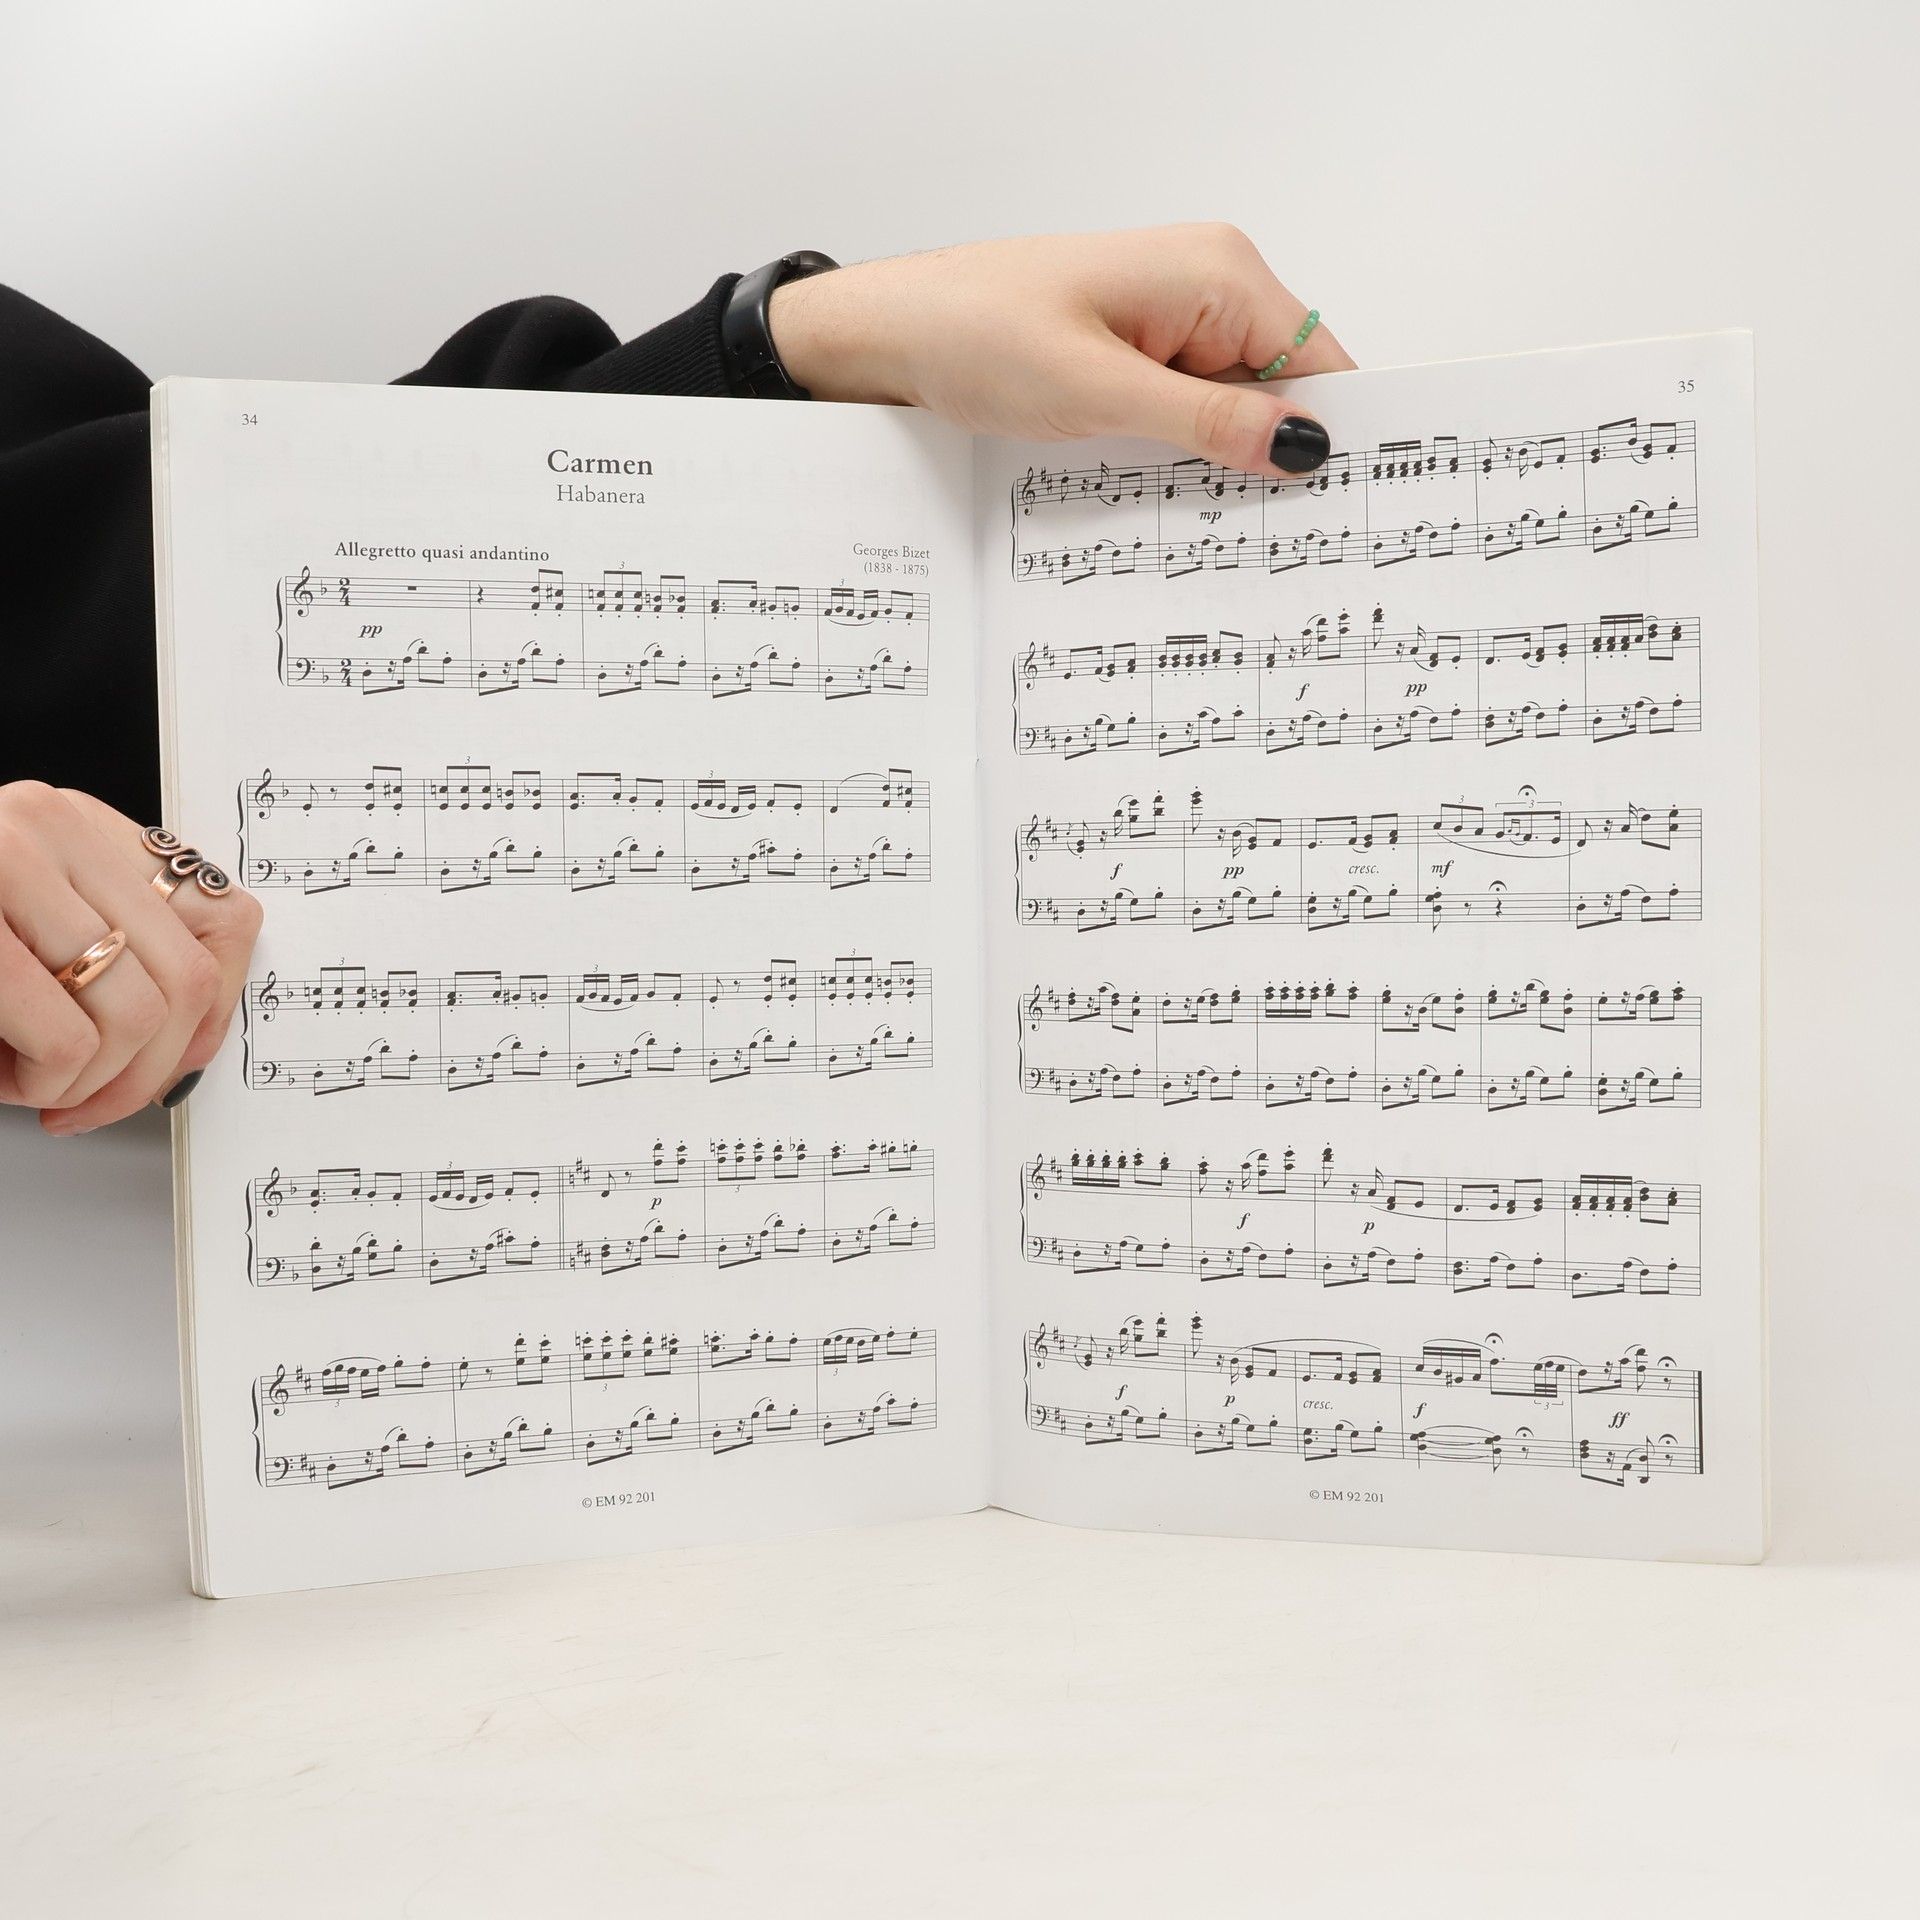 34
Carmen
Habanera
Allegretto quasi andantino
Georges Bizet
(1838 - 1875)
3
3
2
4
pp
2
4
3
3
3
3
3
3
p
3
3
3
3
© EM 92 201
35
mp
f
pp
3
3
f
pp
cresc.
mf
f
p
f
p
cresc.
f
3
ff
© EM 92 201